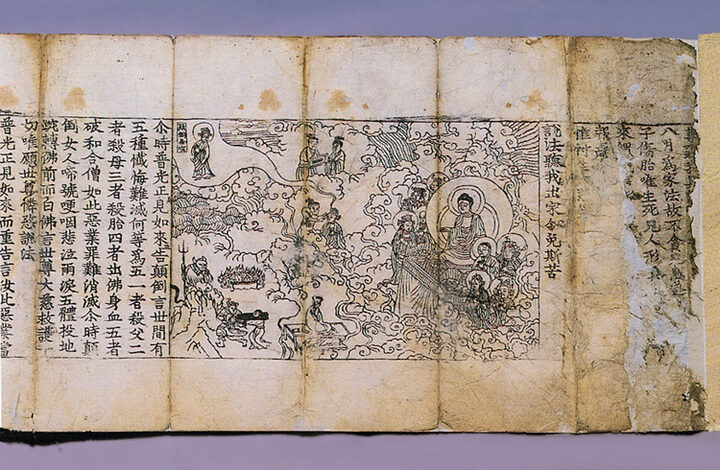 八月爲家法故不貪
子傷胎唯生死兒人形具
說法聽我出家令免斯苦
尒時普光正見如來告顛倒言世間有
五種懺悔難滅何等爲五一者殺父二
者殺母三者殺胎四者出佛身血五者
破和合僧如此惡業罪難消滅尒時顛
倒女人啼號哽咽悲泣雨淚五體投地
踠轉佛前而白佛言世尊大慈救護一
切唯願世尊憐愍說法
普光正見如來而重告言汝此惡業當